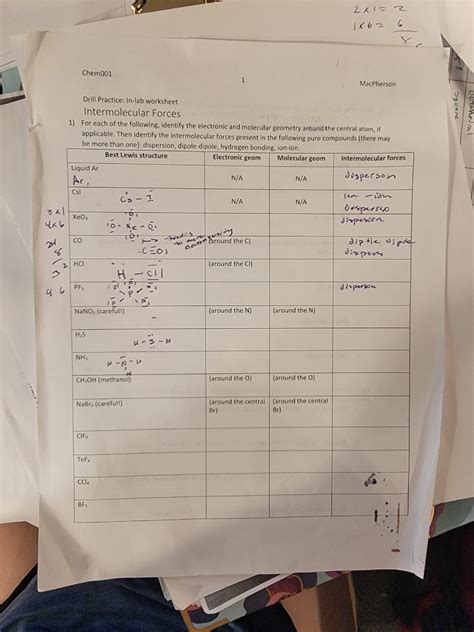 2 x 1 = 2
1 x 6 = 6
Chem001
1
MacPherson
Drill Practice: In-lab worksheet
Intermolecular Forces
1) For each of the following, identify the electronic and molecular geometry around the central atom, if
applicable. Then identify the intermolecular forces present in the following pure compounds (there may
be more than one): dispersion, dipole-dipole, hydrogen bonding, ion-ion.
Best Lewis structure Electronic geom Molecular geom Intermolecular forces
Liquid Ar N/A N/A disperson
Ar
CsI N/A N/A Ion - ion
Cs - I
XeO₃ dispersion
CO (around the C) diple dipole
HCl (around the Cl)
H - Cl
PF₅ disperson
NaNO₂ (careful!) (around the N) (around the N)
H₂S
H - S - H
NH₃
H - N - H
H
CH₃OH (methanol) (around the O) (around the O)
NaBr₃ (careful!) (around the central (around the central
Br) Br)
ClF₅
TeF₄
CCl₄
BF₃